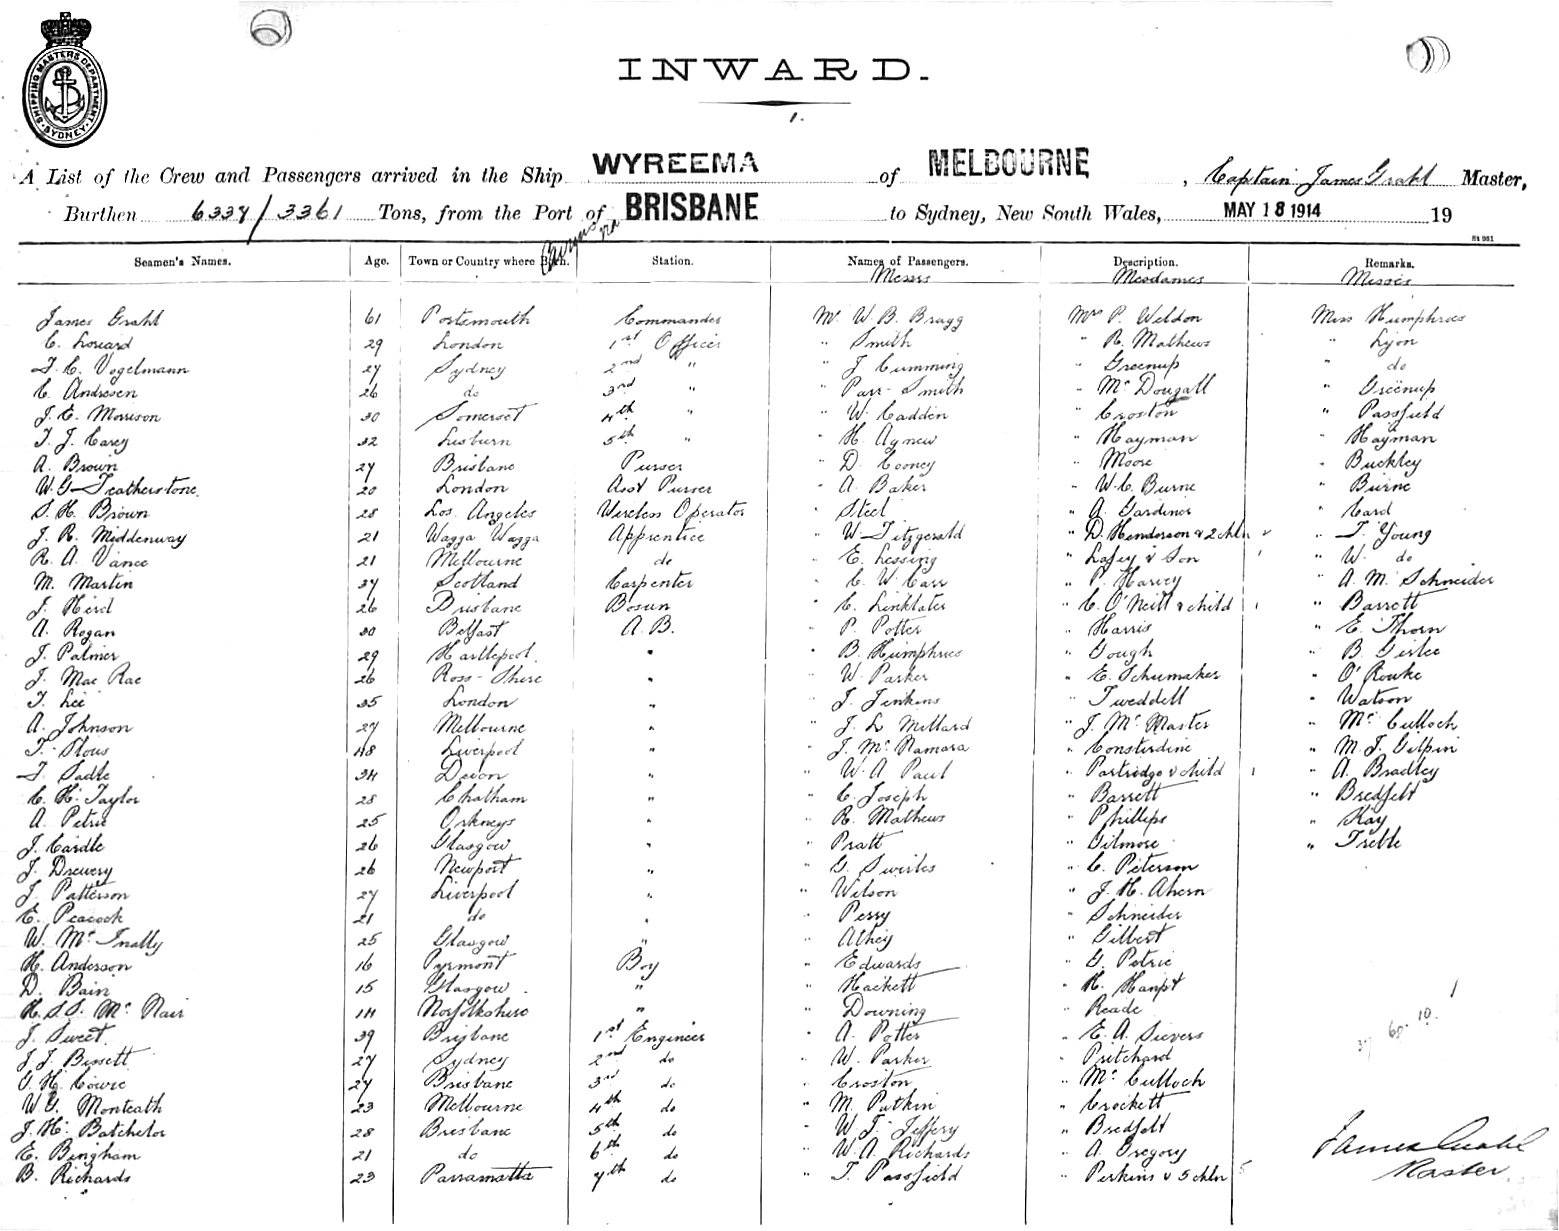 SHIPPING MASTERS DEPARTMENT · SYDNEY ·
INWARD.
1.
A List of the Crew and Passengers arrived in the Ship WYREEMA of MELBOURNE, Captain James Grahl Master,
Burthen 6338/3361 Tons, from the Port of BRISBANE to Sydney, New South Wales, MAY 18 1914 19
Seamen's Names. Age. Town or Country where Born. Station. Names of Passengers. Description. Remarks.
Messrs Mesdames Misses
James Grahl 61 Portsmouth Commander Mr W. B. Bragg Mrs P. Weldon Miss Humphries
C. Louard 29 London 1st Officer " Smith " R. Mathews " Lyon
F. C. Vogelmann 27 Sydney 2nd " " J. Cumming " Greenup " do
C. Andresen 26 do 3rd " " Parr-Smith " McDougall " Greenup
J. E. Morrison 30 Somerset 4th " " W. Cadden " Croston " Passfield
T. J. Carey 32 Lisburn 5th " " H. Agnew " Hayman " Hayman
A. Brown 27 Brisbane Purser " D. Cooney " Moore " Buckley
W. G. Featherstone 20 London Asst Purser " A. Baker " W. C. Burne " Burne
S. H. Brown 28 Los Angeles Wireless Operator " Steel " A. Gardiner " Card
J. R. Middenway 21 Wagga Wagga Apprentice " W. Fitzgerald " D. Henderson & 2 chln " F. Young
R. A. Vance 21 Melbourne do " E. Lessing " & Son " W. do
M. Martin 37 Scotland Carpenter " C. W. Carr " P. Harvey " A. M. Schneider
J. Heird 26 Brisbane Bosun " C. Linklater " C. O'Neill & child " Barrett
A. Rogan 30 Belfast A.B. " P. Potter " Harris " E. Thorn
J. Palmer 29 Hartlepool " " B. Humphries " Gough " B.
J. Mac Rae 26 Ross-Shire " " W. Parker " E. Schumaker " O'Rourke
T. Lee 35 London " " J. Jenkins " Tweddell " Watson
A. Johnson 27 Melbourne " " J. L. Millard " J. McMaster " McCulloch
T. 48 Liverpool " " J. McNamara " Consterdine " M. J. Gilpin
F. Sadle 34 Devon " " W. A. Paul " Partridge & child " A. Bradley
C. H. Taylor 28 Chatham " " C. Joseph " Barrett " Bredfelt
A. Petrie 25 Orkneys " " R. Mathews " Phillips " Kay
J. Cardle 26 Glasgow " " Pratt " Gilmore " Treble
J. Drewery 26 Newport " " G. Swirles " C. Peterson
J. Patterson 27 Liverpool " " Wilson " J. H. Ahern
E. Peacock 21 do " " Perry " Schneider
W. McInally 25 Glasgow " " Athey " Gilbert
H. Anderson 16 Pyrmont Boy " Edwards " G. Petrie
D. Bain 15 Glasgow " " Hackett " H. Hanpt
H. S. S. McNair 14 Norfolkshire " " Downing " Reade
J. Sweet 39 Brisbane 1st Engineer " A. Potter " E. A. Sievers
J. J. Bissett 27 Sydney 2nd do " W. Parker " Pritchard
G. H. Cowie 27 Brisbane 3rd do " Croston " McCulloch
W. G. Monteath 23 Melbourne 4th do " M. Patkin " Crockett
J. H. Batchelor 28 Brisbane 5th do " W. J. Jeffery " Bredfelt
E. Bingham 21 do 6th do " W. A. Richards " A. Gregory
B. Richards 23 Parramatta 7th do " T. Passfield " Perkins & 5 chln 5
37 60. 10. 1
James Grahl
Master